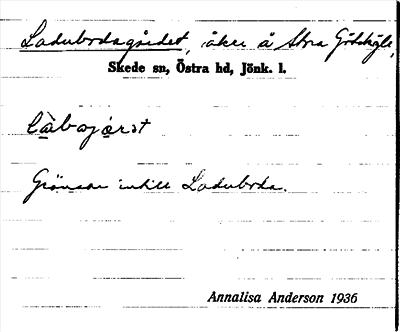 Ladubrdagärdet, åker å Stora Götshylte,
Skede sn, Östra hd, Jönk. l.
làbojǝrst
Gränsar intill Ladubrda.
Annalisa Anderson 1936